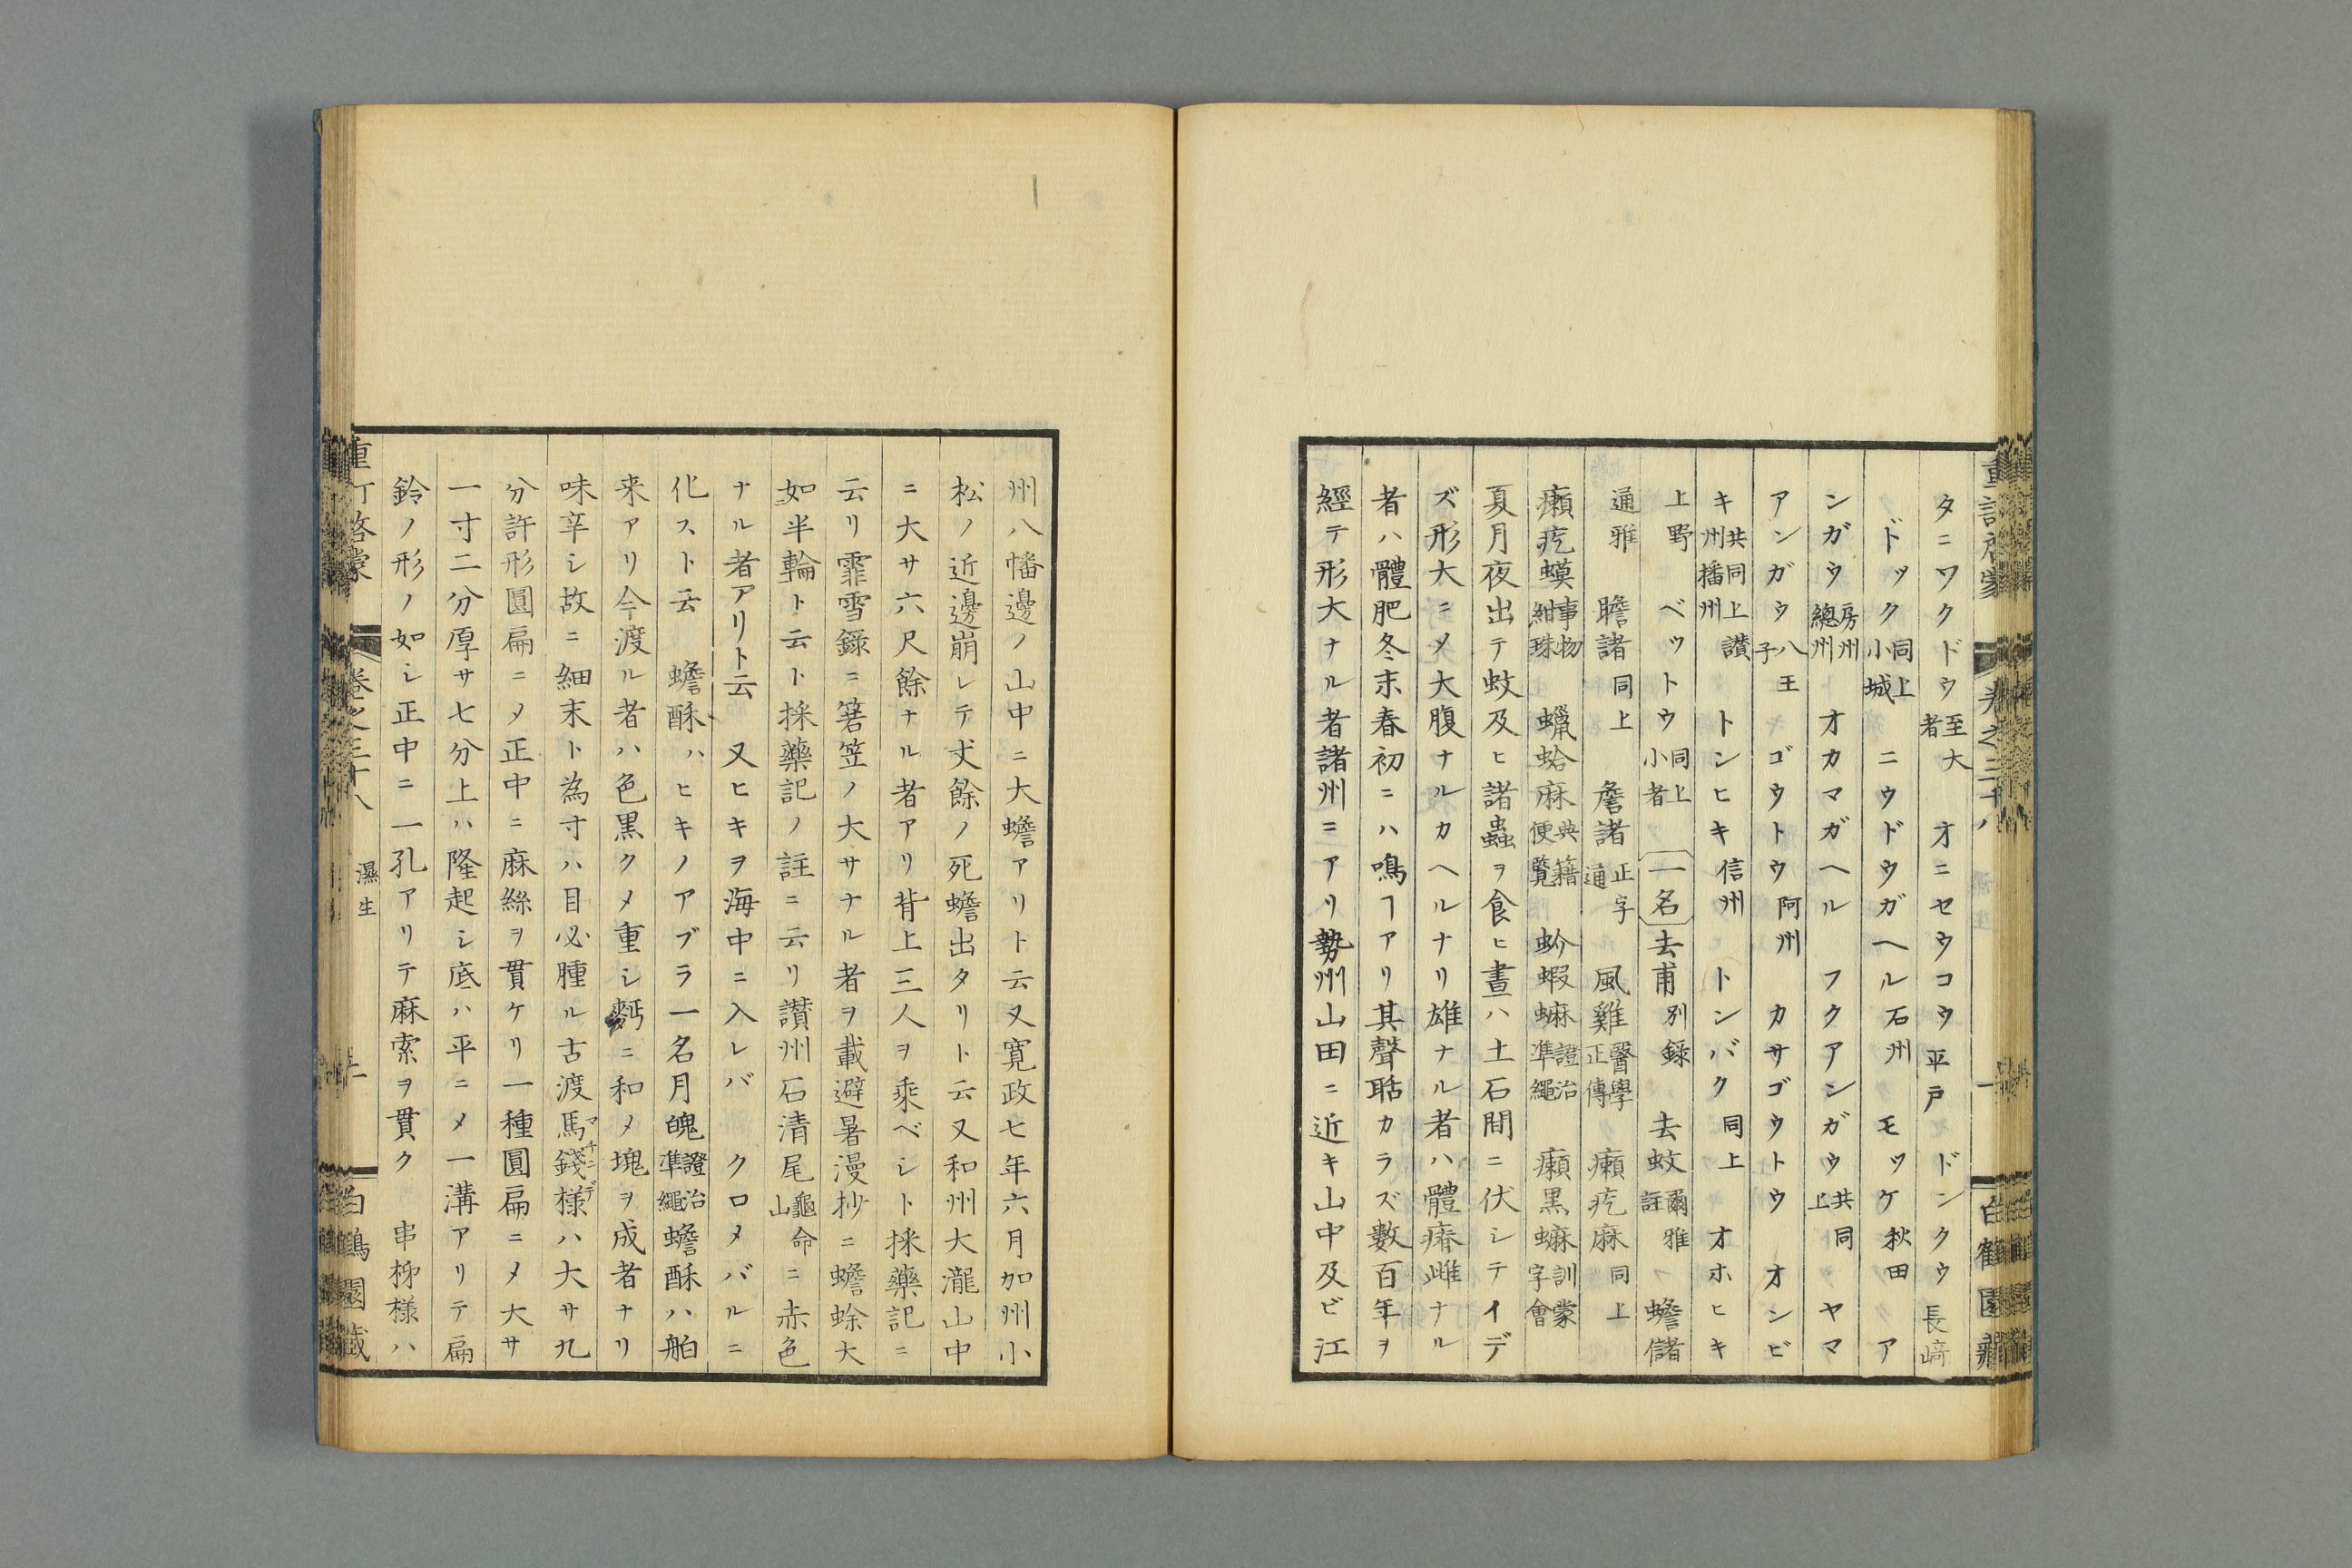 タニワクドウ 至大者 オニセウコウ 平戸 ドンクウ 長﨑
ドック 同上小城 ニウドウガヘル 石州 モッケ 秋田 ア
ンガウ 房州總州 オカマガヘル フクアンガウ 共同上 ヤマ
アンガウ 八王子 ゴウトウ 阿州 カサゴウトウ オンビ
キ 共同上讃州播州 トンヒキ 信州 トンバク 同上 オホヒキ
上野 ベットウ 同上小者 一名 去甫 別録 去蚊 爾雅註 蟾儲
通雅 瞻諸 同上 詹諸 正字通 風雞 醫學正傳 癩疙麻 同上
癩疙蟆 事物紺珠 蠟蛤麻 典籍便覧 蚧蝦蟵 證治準繩 癩黒蟵 訓蒙字會
夏月夜出テ蚊及ヒ諸蟲ヲ食ヒ晝ハ土石間ニ伏シテイデ
ズ形大ニメ大腹ナルカヘルナリ雄ナル者ハ體瘠雌ナル
者ハ體肥冬末春初ニハ鳴ヿアリ其聲聒カラズ數百年ヲ
經テ形大ナル者諸州ニアリ勢州山田ニ近キ山中及ビ江
州八幡邊ノ山中ニ大蟾アリト云又寛政七年六月加州小
松ノ近邊崩レテ丈餘ノ死蟾出タリト云又和州大瀧山中
ニ大サ六尺餘ナル者アリ背上三人ヲ乘ベシト採藥記ニ
云リ霏雪錄ニ箬笠ノ大サナル者ヲ載避暑漫抄ニ蟾蜍大
如半輪ト云ト採藥記ノ註ニ云リ讃州石清尾 龜命山 ニ赤色
ナル者アリト云 又ヒキヲ海中ニ入レバ クロメバルニ
化スト云 蟾酥ハヒキノアブラ一名月魄 證治準繩 蟾酥ハ舶
来アリ今渡ル者ハ色黒クメ重シ麪ニ和メ塊ヲ成者ナリ
味辛シ故ニ細末ト為寸ハ目必腫ル古渡馬錢様ハ大サ九
分許形圓扁ニメ正中ニ麻絲ヲ貫ケリ一種圓扁ニメ大サ
一寸二分厚サ七分上ハ隆起シ底ハ平ニメ一溝アリテ扁
鈴ノ形ノ如シ正中ニ一孔アリテ麻索ヲ貫ク 串柹様ハ
濕生